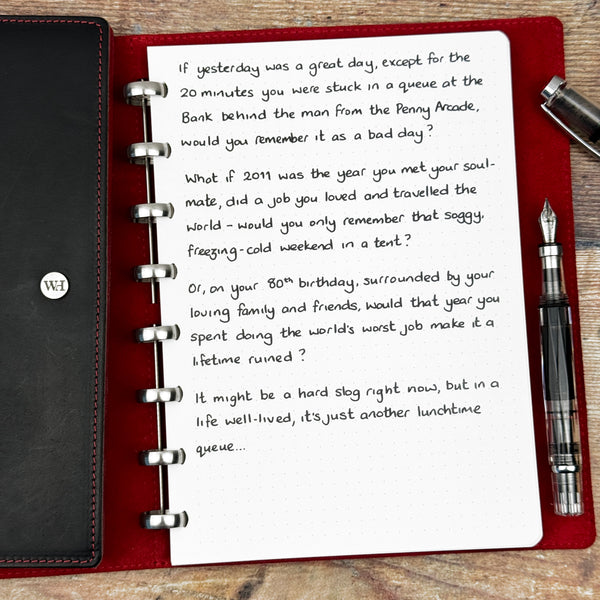 If yesterday was a great day, except for the
20 minutes you were stuck in a queue at the
Bank behind the man from the Penny Arcade,
would you remember it as a bad day?
What if 2011 was the year you met your soul-
mate, did a job you loved and travelled the
world - would you only remember that soggy,
freezing-cold weekend in a tent?
Or, on your 80th birthday, surrounded by your
loving family and friends, would that year you
spent doing the world's worst job make it a
lifetime ruined?
It might be a hard slog right now, but in a
life well-lived, it's just another lunchtime
queue...
WH